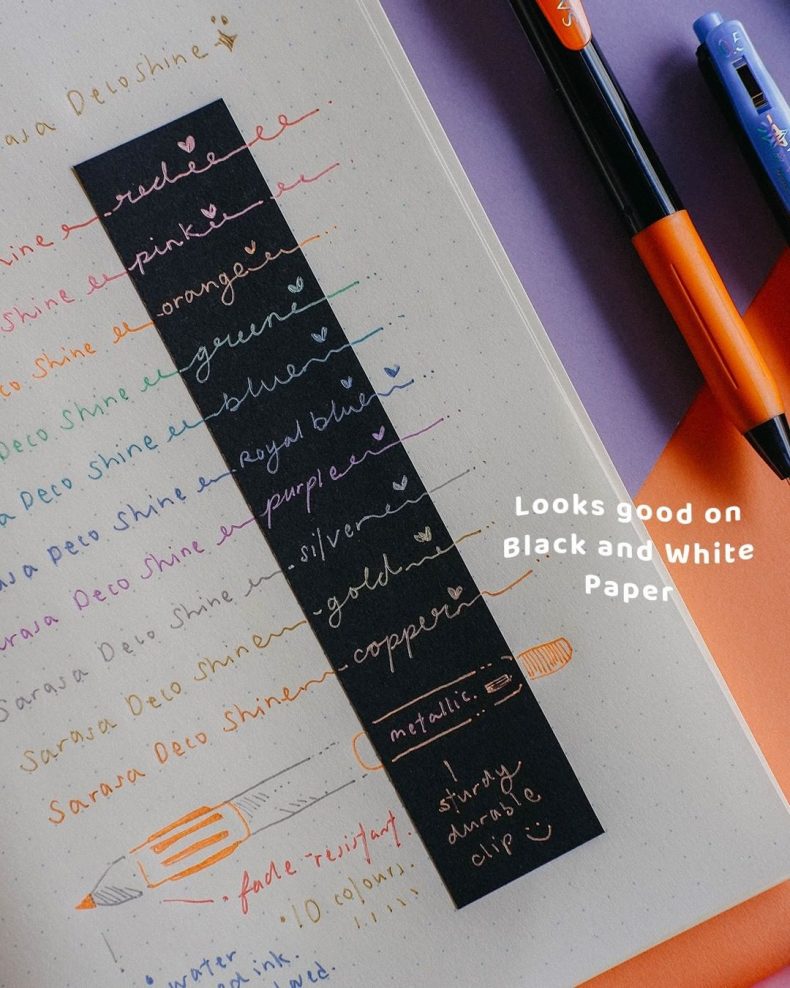 Sarasa Deco Shine
Shine red
Shine pink
Deco Shine orange
Deco Shine green
Sarasa Deco Shine blue
Sarasa Deco Shine Royal blue
Sarasa Deco Shine purple
Sarasa Deco Shine silver
Sarasa Deco Shine gold
Sarasa Deco Shine copper
metallic.
sturdy
durable
clip
fade-resistant.
10 colours.
water
ink.
Looks good on
Black and White
Paper